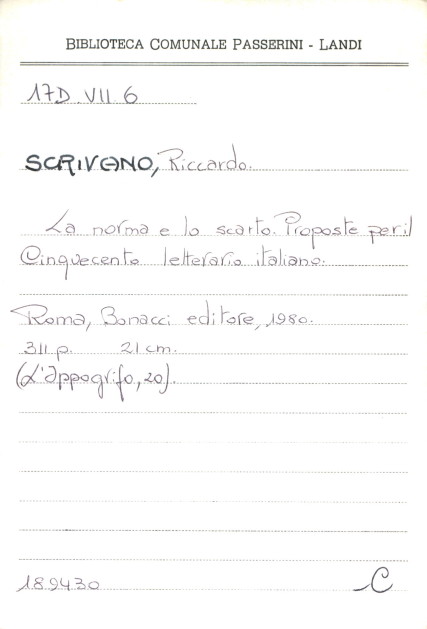 BIBLIOTECA COMUNALE PASSERINI - LANDI
17D.VII.6
SCRIVANO, Riccardo.
La norma e lo scarto. Proposte per il
Cinquecento letterario italiano.
Roma, Bonacci editore, 1980.
311 p. 21 cm.
(L'Appogrifo, 20).
189430 C